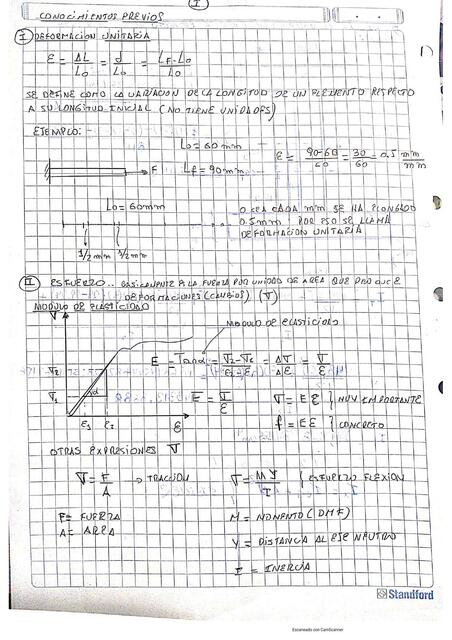 I
CONOCIMIENTOS PREVIOS
I DEFORMACION UNITARIA
1)
ε = ΔL/Lo = d/Lo = (LF - Lo)/Lo
SE DEFINE COMO LA VARIACION DE LA LONGITUD DE UN ELEMENTO RESPECTO
A SU LONGITUD INICIAL (NO TIENE UNIDADES)
EJEMPLO:
Lo = 60mm
Lf = 90mm
F
ε = (90-60)/60 = 30/60 = 0.5 mm/mm
Lo = 60mm
1/2 mm 1/2 mm
O SEA CADA mm SE HA
0.5mm POR ESO SE LLAMA
DEFORMACION UNITARIA
II ESFUERZO.. BASICAMENTE ES LA FUERZA POR UNIDAD DE AREA QUE PRODUCE
DEFORMACIONES (CAMBIOS) (∇)
MODULO DE ELASTICIDAD
∇
MODULO DE ELASTICIDAD
∇2
∇1
α
ε1 ε2 ε
E = Tanα = = Δ∇/Δε = ∇/ε
E = ∇/ε
∇ = E ε } MUY IMPORTANTE
f = E ε } CONCRETO
OTRAS EXPRESIONES ∇
∇ = F/A → TRACCION
F = FUERZA
A = AREA
∇ = MY/I } ESFUERZO FLEXION
M = MOMENTO (DMF)
Y = DISTANCIA AL EJE NEUTRO
I = INERCIA
Standford
Escaneado con CamScanner